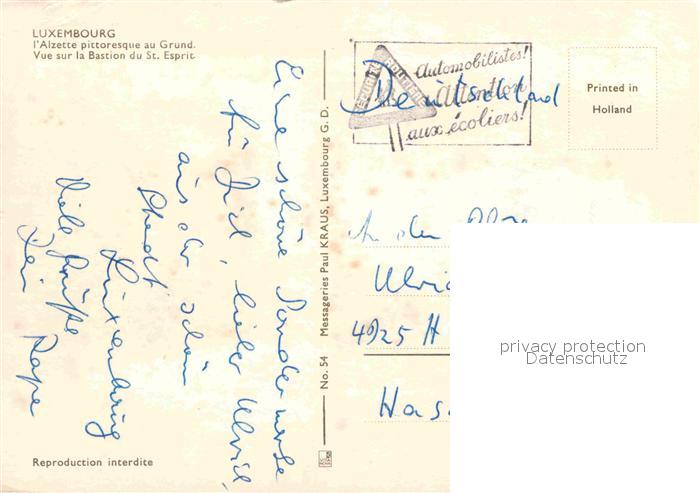 LUXEMBOURG
l'Alzette pittoresque au Grund.
Vue sur la Bastion du St. Esprit
Eine schöne Sondermarke
für Dich, lieber Ulrich,
aus der schönen
Stadt
Luxemburg
Viele Grüße
Dein Papa
Reproduction interdite
No. 54 Messageries Paul KRAUS, Luxembourg G. D.
SÉCURITÉ ROUTIÈRE
Automobilistes!
attention
aux écoliers!
Deutschland
Printed in
Holland
An den
Ulric
4925 H
Has
privacy protection
Datenschutz